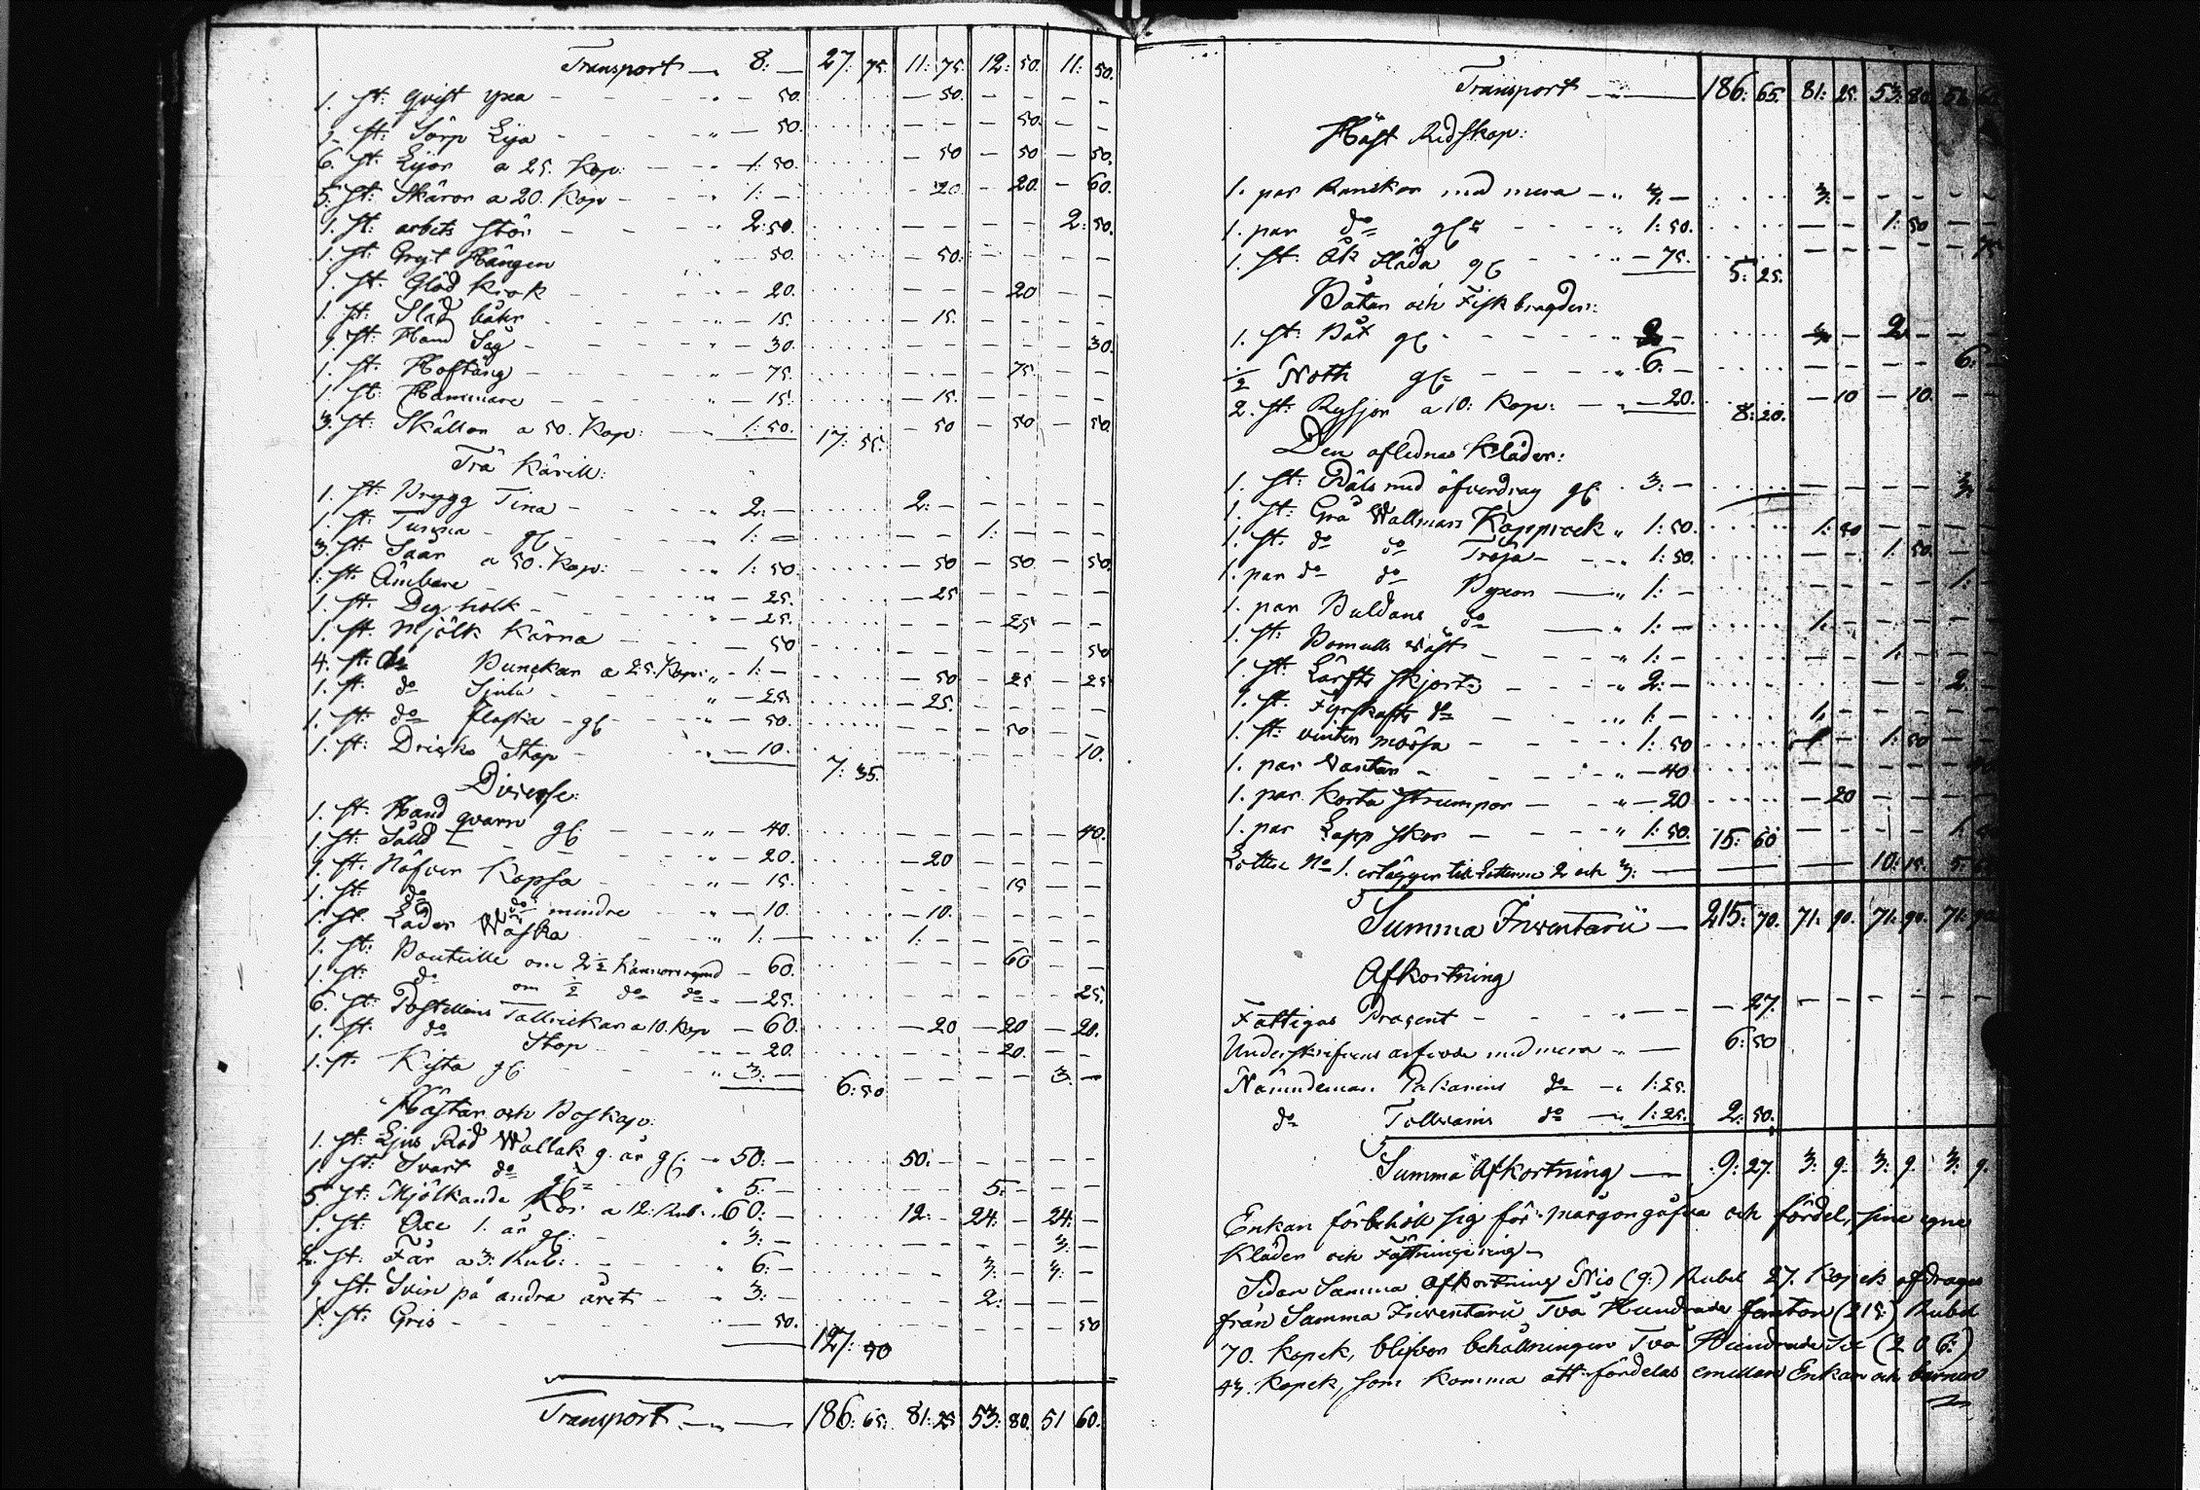 Transport — 8: — 27: 75. 11: 75. 12: 50. 11: 50.
1. st: qvist yxa - - - — 50. — 50.
1. st: Sörp Lya - - - — 50. 50.
6. st: Lijor a 25. Kop: — 1: 50. — 50 — 50 — 50.
5. st: Skäror a 20. Kop - - 1: — — 20 — 20. — 60.
1. st: arbets stör - - - 2: 50. 2: 50.
1. st: Gryt Hängen — 50. — 50.
1. st: Glöd krok - - — 20. 20
1. st: Slad - - — 15. — 15.
1. st: Hand Såg - - - — 30. 30.
1. st: Hoftång - - - — 75. 75.
1. st: Hammare - - - — 15. — 15.
3. st: Skällor a 50. Kop: — 1: 50. 17: 55. — 50 — 50 — 50
Trä Kärill:
1. st: Brygg Tina - - - 2: — 2: —
1. st: Tunna - gl - - 1: — 1: —
3. st: Såar a 50. Kop: - - 1: 50. — 50 — 50. — 50.
1. st: Ämbare - - - — 25. — 25
1. st: Deg holk - - - — 25. 25
1. st: Mjölk Kärna - - — 50 50
4. st: do Bunckar a 25. Kop: „ 1: — — 50 — 25 — 25
1. st: do - - — 25. — 25.
1. st: do flaska - gl - - — 50. 50
1. st: Dricks Stop - - — 10. 7: 35. 10.
Diverse:
1. st: Hand qvarn gl: - - „ — 40. 40.
1. st: Såld - - - — 20. — 20
1. st: Näfver Kopsa - - „ — 15. 15
1. st: do do mindre - - „ — 10. — 10.
1. st: Läder Wäska - - „ 1: — 1: —
1. st: Bouteille om 2½ — 60. 60
1. st: do om ½ do do - — 25. 25.
6. st: Postellins Tallrickar a 10. Kop — 60. — 20 — 20 — 20.
1. st: do Stop - - — 20. 20.
1. st: Kista gl: - - „ 3: — 6: 50 3: —
Hästar och Boskap:
1. st: Ljus Röd Wallak 9. år gl: - 50: — 50: —
1. st: Svart do gl= - - 5: — 5: —
5. st: Mjölkande Kor a 12. Rub: 60: — 12: — 24: — 24: —
1. st: Oxe 1. år gl: - - 3: — 3: —
2. st: Får a 3: Rub: - - „ 6: — 3: — 3: —
1. st: Svin på andra året - - 3: — 2: —
1. st: Gris - - - — 50. 127: 50 50
Transport — — 186: 65. 81: 25 53: 80. 51 60.
Transport — 186: 65. 81: 25. 53: 80
Häst Redskap:
1. par Ranckor med mera — „ 3: — 3: —
1. par do gl= - - - „ 1: 50. 1: 50
1. st: Åk släda gl - - - — 75. 5: 25. 75
Båtar och Fiskbragder:
1. st: Båt gl - - - „ 2 — 2: —
½ Noth gl= - - - „ 6. — 6: —
2. st: Rysjor a 10: Kop: — — 20. 8: 20. — 10 — 10.
Den aflednas Kläder:
1. st: Päls med öfverdrag gl: 3: — 3:
1. st: Grå Wallmars Kapprock „ 1: 50. 1: 50
1. st: do do Tröja - - 1: 50. 1: 50.
1. par do do Byxor — „ 1: — 1: —
1. par Buldans do — „ 1: — 1: —
1. st: Bomulls väst - - „ 1: — 1: —
1. st: Lärfts skjorta - - „ 2: — 2: —
1. st: Fyrskafts do - - „ 1: — 1: —
1. st: vinter mössa - - - 1: 50 1: 50
1. par Vantar - - - „ — 40
1. par korta strumpor — „ — 20 — 20
1. par Lapp skor - - - „ 1: 50. 15: 60 1:
Lotten No 1. erlägger till Lotterne 2 och 3: — 10: 15. 5:
Summa Inventarii — 215: 70. 71: 90. 71: 90. 71: 90
Afkortning
Fattigas Procent - - - — 27.
Underskrifvens arfvode med mera „ — 6: 50
Nämndeman Pakarins do — 1: 25.
do Tollvanis do — 1: 25. 2: 50.
Summa Afkortning — 9: 27. 3: 9. 3: 9. 3: 9.
Enkan förbehöll sig för margongåfva och fördel, sine egne
Kläder och Fästningering
Sedan Summa Afkortning Nio (9:) Rubel 27. Kopek afdrages
från Summa Inventarii Två Hundrade femton (215:) Rubel
70. kopek, blifver behållningen Två Hundrade Sex (206:)
43. Kopek, som komma att fördelas emellan Enkan och barnen